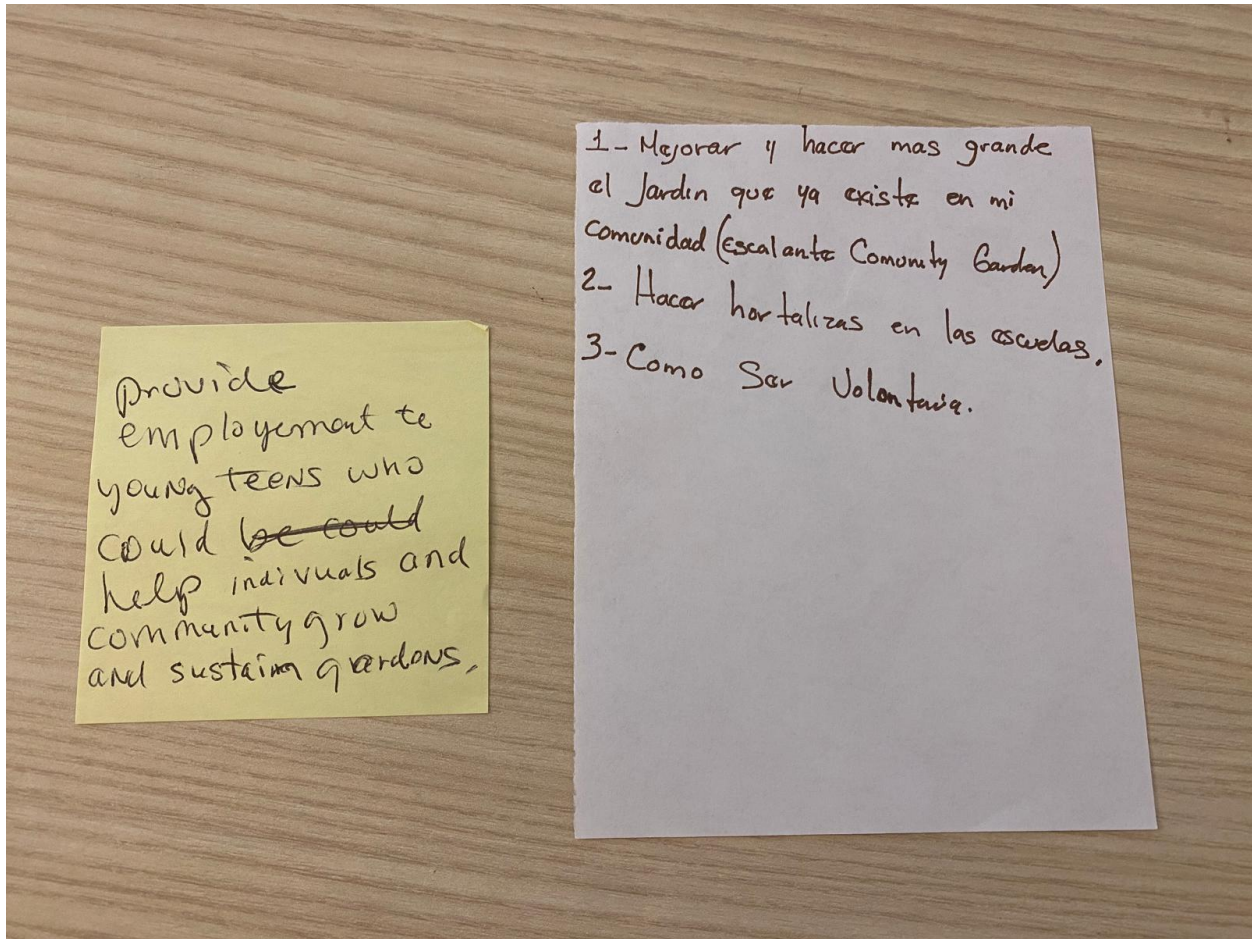 provide
employement to
young teens who
could be could
help indivuals and
community grow
and sustain gardons.
1- Mejorar y hacer mas grande
el Jardin que ya existe en mi
comunidad (Escalante Comunity Garden)
2- Hacer hortalizas en las escuelas.
3- Como Ser Volontaria.